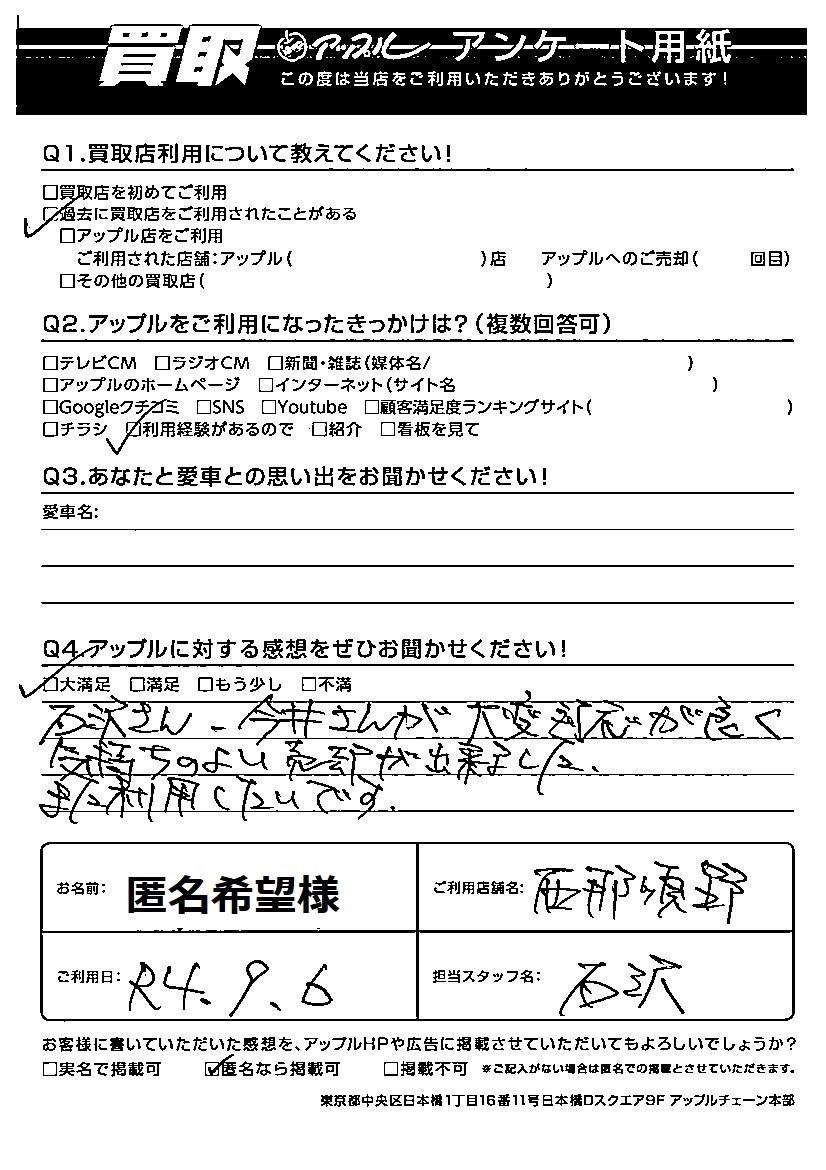 買取 アップル アンケート用紙
この度は当店をご利用いただきありがとうございます!
Q1.買取店利用について教えてください!
□買取店を初めてご利用
☑過去に買取店をご利用されたことがある
□アップル店をご利用
ご利用された店舗:アップル( )店 アップルへのご売却( 回目)
□その他の買取店( )
Q2.アップルをご利用になったきっかけは?(複数回答可)
□テレビCM □ラジオCM □新聞・雑誌(媒体名/ )
□アップルのホームページ □インターネット(サイト名 )
□Googleクチコミ □SNS □Youtube □顧客満足度ランキングサイト( )
□チラシ ☑利用経験があるので □紹介 □看板を見て
Q3.あなたと愛車との思い出をお聞かせください!
愛車名:
Q4.アップルに対する感想をぜひお聞かせください!
☑大満足 □満足 □もう少し □不満
石沢さん、今井さんが大変対応が良く
気持ちのよい売却が出来ました、
また利用したいです.
お名前: 匿名希望様
ご利用店舗名: 西那須野
ご利用日: R4.9.6
担当スタッフ名: 石沢
お客様に書いていただいた感想を、アップルHPや広告に掲載させていただいてもよろしいでしょうか?
□実名で掲載可 ☑匿名なら掲載可 □掲載不可 ※ご記入がない場合は匿名での掲載とさせていただきます。
東京都中央区日本橋1丁目16番11号日本橋Dスクエア9F アップルチェーン本部